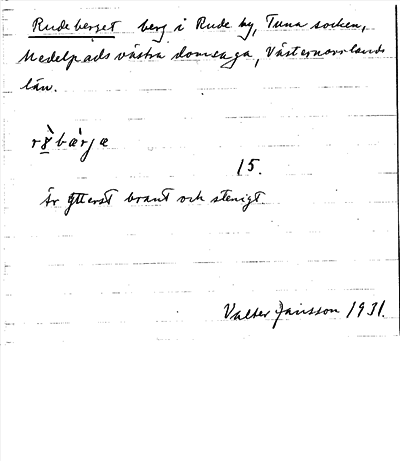 Rudeberget berg i Rude by, Tuna socken,
Medelpads västra domsaga, Västernorrlands
län.
15.
Är ytterst brant och stenigt.
Valter Jansson 1931.